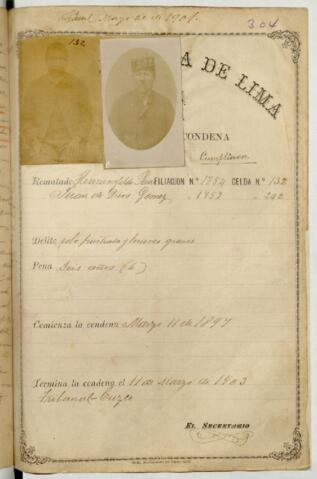 Marzo 20 de 1901.
304
132
A DE LIMA
CONDENA
Cumplieron
Rematado FILIACION N.º 1854 CELDA N.º 132
Juan de Dios Gomez " 1857 " 242
Delito robo frustrado y lesiones graves
Pena Seis años (6)
Comienza la condena Marzo 11 de 1897
Termina la condena el 11 de Marzo de 1903
Tribunal Cuzco
EL SECRETARIO